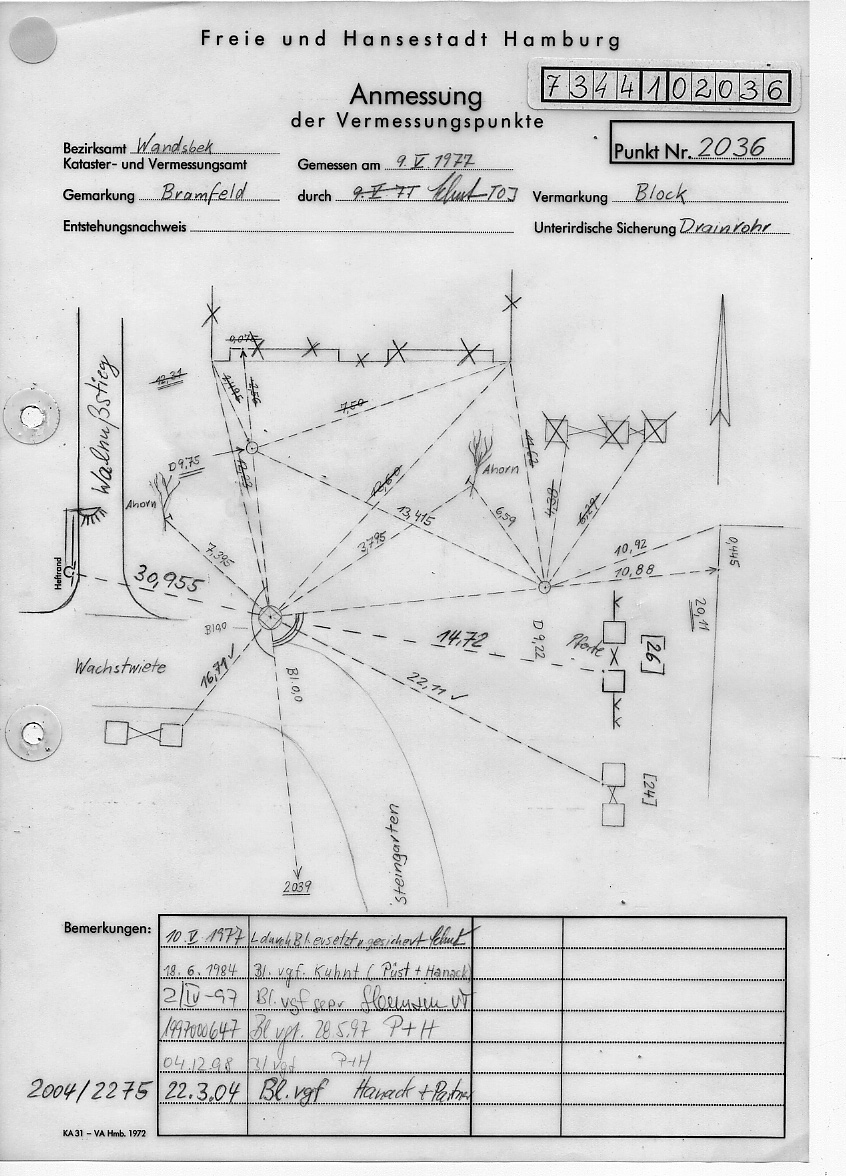 Freie und Hansestadt Hamburg
7344102036
Anmessung
der Vermessungspunkte
Punkt Nr. 2036
Bezirksamt Wandsbek
Kataster- und Vermessungsamt
Gemessen am 9.V.1977
Gemarkung Bramfeld
durch 9.V.77
Vermarkung Block
Entstehungsnachweis
Unterirdische Sicherung Drainrohr
0,075
12,31
7,50
Walnußstieg
D 9,75
Ahorn
Ahorn
12,60
13,415
6,59
3,795
7,395
10,92
10,88
0,445
20,11
Heftrand
30,955
Bl.0,0
14,72
D 9,22
Pforte
[26]
Wachstwiete
16,71 ✓
Bl.0,0
22,11 ✓
[24]
Steingarten
2039
Bemerkungen:
10.V.1977 durch Bl. ersetzt u. gesichert
18.6.1984 Bl. vgf. Kuhnt (Püst + Hanack)
2/IV-97 Bl. vgf
1997000647 Bl vgf. 28.5.97 P+H
04.12.98 Bl vgf P+H
2004/2275 22.3.04 Bl. vgf Hanack + Partner
KA 31 – VA Hmb. 1972